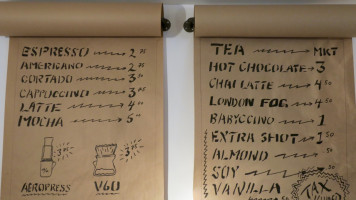 ESPRESSO 2 75
AMERICANO 2 75
CORTADO 3 50
CAPPUCCINO 3 75
LATTE 4 50
MOCHA 5 00
AEROPRESS
V60
TEA MKT
HOT CHOCOLATE 3
CHAI LATTE 4 50
LONDON FOG 4 50
BABYCCINO 1
EXTRA SHOT 1
ALMOND 50
SOY
VANILLA
TAX